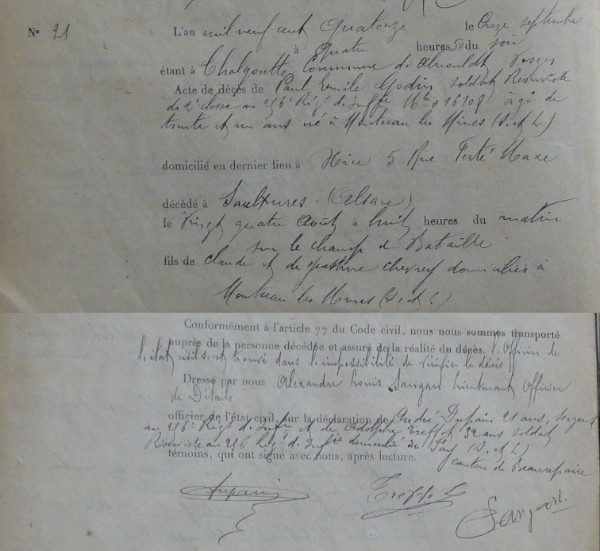 N° 21
L'an mil neuf cent Quatorze le Onze septembre
à quatre heures 50 du soir
étant à Commune de Vosges
Acte de décès de Paul Emile Godin soldat Réserviste
de 2e classe au Rég. d' Inf. Mle 016108 âgé de
trente et un ans né à Montceau les Mines (S. et L.)
domicilié en dernier lieu à 5 Rue
décédé à Saulxures (Alsace)
le Vingt quatre Août à huit heures du matin
sur le champ de Bataille
fils de Claude et de domiciliés à
Montceau les Mines (S. et L.)
Conformément à l'article 77 du Code civil, nous nous sommes transporté
auprès de la personne décédée et assuré de la réalité du décès. l'Officier de
l'état civil s'est trouvé dans l'impossibilité de vérifier le décès
Dressé par nous Alexandre Louis Sangart Lieutenant Officier
de Détails
officier de l'état civil, sur la déclaration de André Dupain 21 ans, sergent
au Rég. d'Inf. et de Adolphe Treffot 32 ans soldat
Réserviste au Rég. d'Inf. domicilié à (S. et L.)
canton de Beaurepaire
témoins, qui ont signé avec nous, après lecture.
Dupain Treffot Sangart